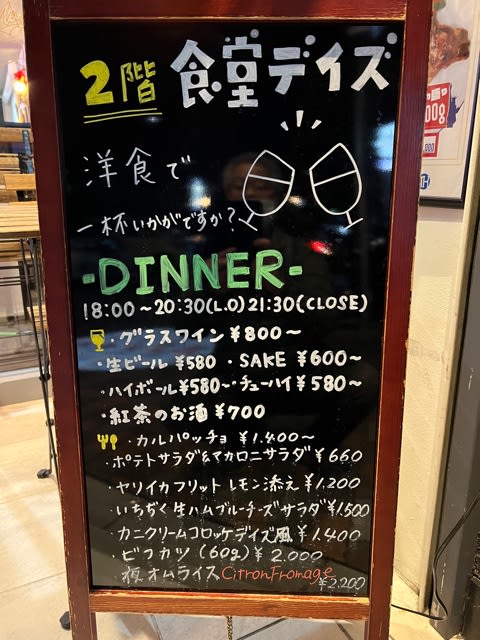 2階 食堂デイズ
洋食で
一杯いかがですか?
-DINNER-
18:00～20:30(L.O) 21:30(CLOSE)
・グラスワイン ¥800～
・生ビール ¥580 ・SAKE ¥600～
・ハイボール¥580～・チューハイ¥580～
・紅茶のお酒 ¥700
・カルパッチョ ¥1.400～
・ポテトサラダ&マカロニサラダ ¥660
・ヤリイカフリット レモン添え ¥1.200
・いちぢく生ハムブルーチーズサラダ ¥1,500
・カニクリームコロッケデイズ風 ¥1.400
・ビフカツ (60g) ¥2.000
・夜オムライス CitronFromage
¥2.200
00g